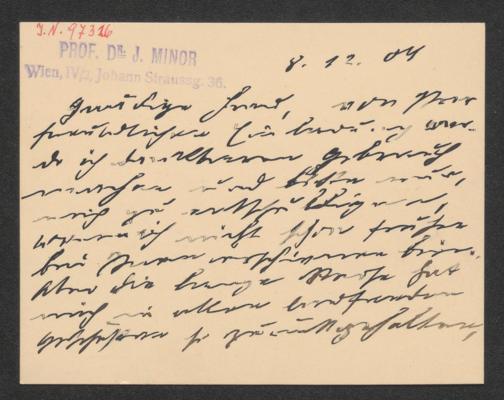 I.N. 97326
PROF. DR. J. MINOR
Wien, IV/2, Johann Straussg. 36.
8. 12. 04
Gnädige Frau, von Ihrer
freundlichen Einladung wer-
de ich dankbaren Gebrauch
machen und bitte nur,
mich zu entschuldigen,
wenn ich nicht schon früher
bei Ihnen erschienen bin.
Aber die lange Reise hat
mich in allen laufenden
Geschäften so zurückgehalten,